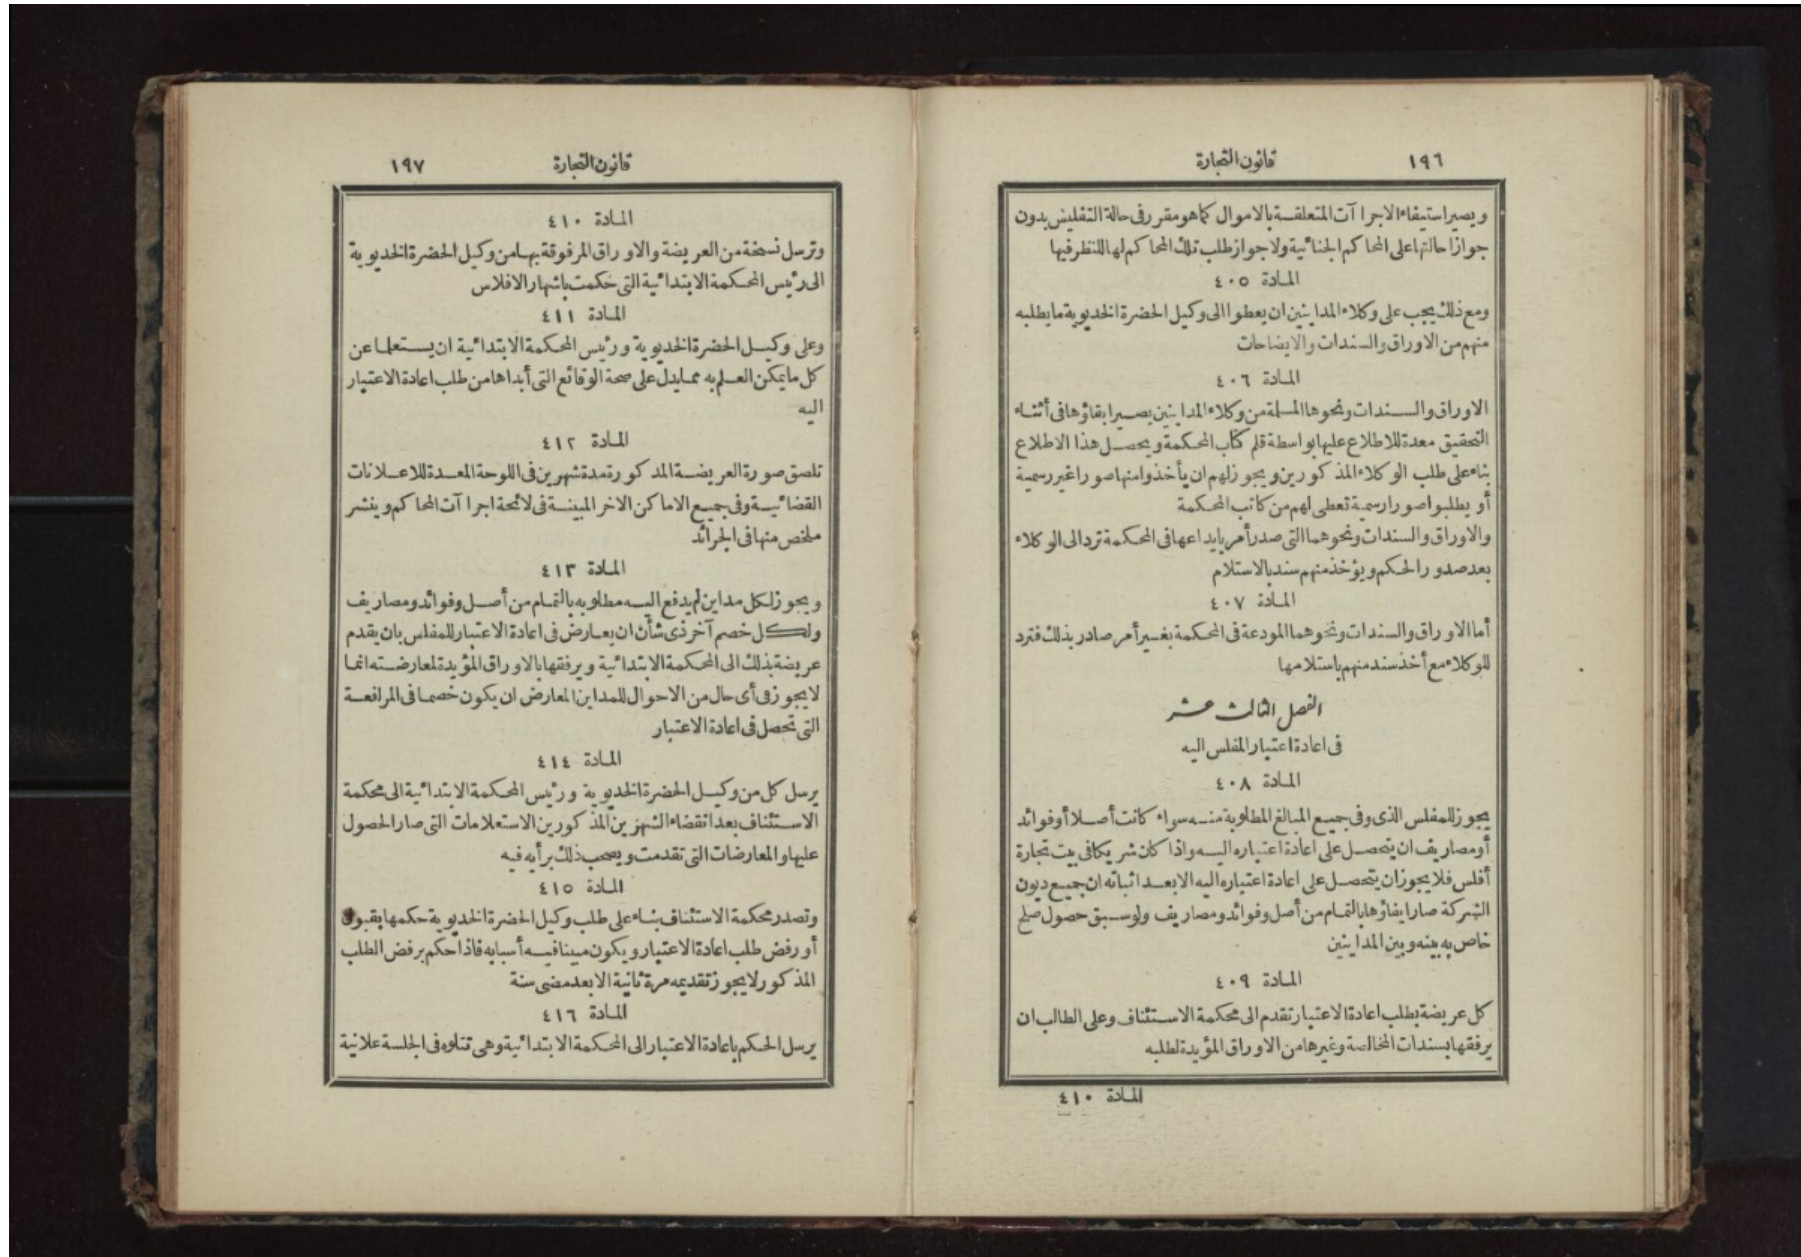 ١٩٦ قانون التجارة
ويصير استيفاء الاجراآت المتعلقة بالاموال كما هو مقرر فى حالة التفليس بدون
جواز احالتها على المحاكم الجنائية ولا جواز طلب تلك المحاكم لها للنظر فيها
المادة ٤٠٥
ومع ذلك يجب على وكلاء المداينين ان يعطوا الى وكيل الحضرة الخديوية ما يطلبه
منهم من الاوراق والسندات والايضاحات
المادة ٤٠٦
الاوراق والسندات ونحوها المسلمة من وكلاء المداينين يصير ابقاؤها فى أثناء
التحقيق معدة للاطلاع عليها بواسطة قلم كتاب المحكمة ويحصل هذا الاطلاع
بناء على طلب الوكلاء المذكورين ويجوز لهم ان يأخذوا منها صورا غير رسمية
أو يطلبوا صورا رسمية تعطى لهم من كاتب المحكمة
والاوراق والسندات ونحوهما التى صدر أمر بايداعها فى المحكمة ترد الى الوكلاء
بعد صدور الحكم ويؤخذ منهم سند بالاستلام
المادة ٤٠٧
أما الاوراق والسندات ونحوهما المودعة فى المحكمة بغير أمر صادر بذلك فترد
للوكلاء مع أخذ سند منهم باستلامها
الفصل الثالث عشر
فى اعادة اعتبار المفلس اليه
المادة ٤٠٨
يجوز للمفلس الذى وفى جميع المبالغ المطلوبة منه سواء كانت أصلا أو فوائد
أو مصاريف ان يتحصل على اعادة اعتباره اليه واذا كان شريكا فى بيت تجارة
أفلس فلا يجوز ان يتحصل على اعادة اعتباره اليه الا بعد اثباته ان جميع ديون
الشركة صار ايفاؤها بالتمام من أصل وفوائد ومصاريف ولو سبق حصول صلح
خاص به بينه وبين المداينين
المادة ٤٠٩
كل عريضة بطلب اعادة الاعتبار تقدم الى محكمة الاستئناف وعلى الطالب ان
يرفقها بسندات المخالصة وغيرها من الاوراق المؤيدة لطلبه
المادة ٤١٠
قانون التجارة ١٩٧
المادة ٤١٠
وترسل نسخة من العريضة والاوراق المرفوقة بها من وكيل الحضرة الخديوية
الى رئيس المحكمة الابتدائية التى حكمت باشهار الافلاس
المادة ٤١١
وعلى وكيل الحضرة الخديوية ورئيس المحكمة الابتدائية ان يستعلما عن
كل ما يمكن العلم به مما يدل على صحة الوقائع التى أبداها من طلب اعادة الاعتبار
اليه
المادة ٤١٢
تلصق صورة العريضة المذكورة مدة شهرين فى اللوحة المعدة للاعلانات
القضائية وفى جميع الاماكن الاخر المبينة فى لائحة اجراآت المحاكم وينشر
ملخص منها فى الجرائد
المادة ٤١٣
ويجوز لكل مداين لم يدفع اليه مطلوبه بالتمام من أصل وفوائد ومصاريف
ولكل خصم آخر ذى شأن ان يعارض فى اعادة الاعتبار للمفلس بان يقدم
عريضة بذلك الى المحكمة الابتدائية ويرفقها بالاوراق المؤيدة لمعارضته انما
لا يجوز فى أى حال من الاحوال للمداين المعارض ان يكون خصما فى المرافعة
التى تحصل فى اعادة الاعتبار
المادة ٤١٤
يرسل كل من وكيل الحضرة الخديوية ورئيس المحكمة الابتدائية الى محكمة
الاستئناف بعد انقضاء الشهرين المذكورين الاستعلامات التى صار الحصول
عليها والمعارضات التى تقدمت ويصحب ذلك برأيه فيه
المادة ٤١٥
وتصدر محكمة الاستئناف بناء على طلب وكيل الحضرة الخديوية حكمها بقبول
أو رفض طلب اعادة الاعتبار ويكون مبينا فيه أسبابه فاذا حكم برفض الطلب
المذكور لا يجوز تقديمه مرة ثانية الا بعد مضى سنة
المادة ٤١٦
يرسل الحكم باعادة الاعتبار الى المحكمة الابتدائية وهى تتلوه فى الجلسة علانية